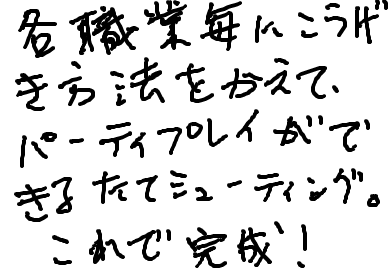 各職業毎にこうげ
き方法をかえて、
パーティプレイがで
きるたてミューティング。
これで完成!